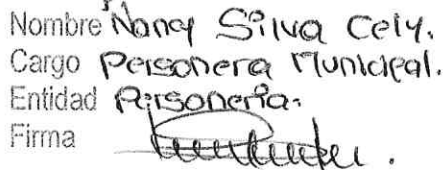 Nombre Nancy Silva Cely.
Cargo Personera Municipal.
Entidad Personería.
Firma